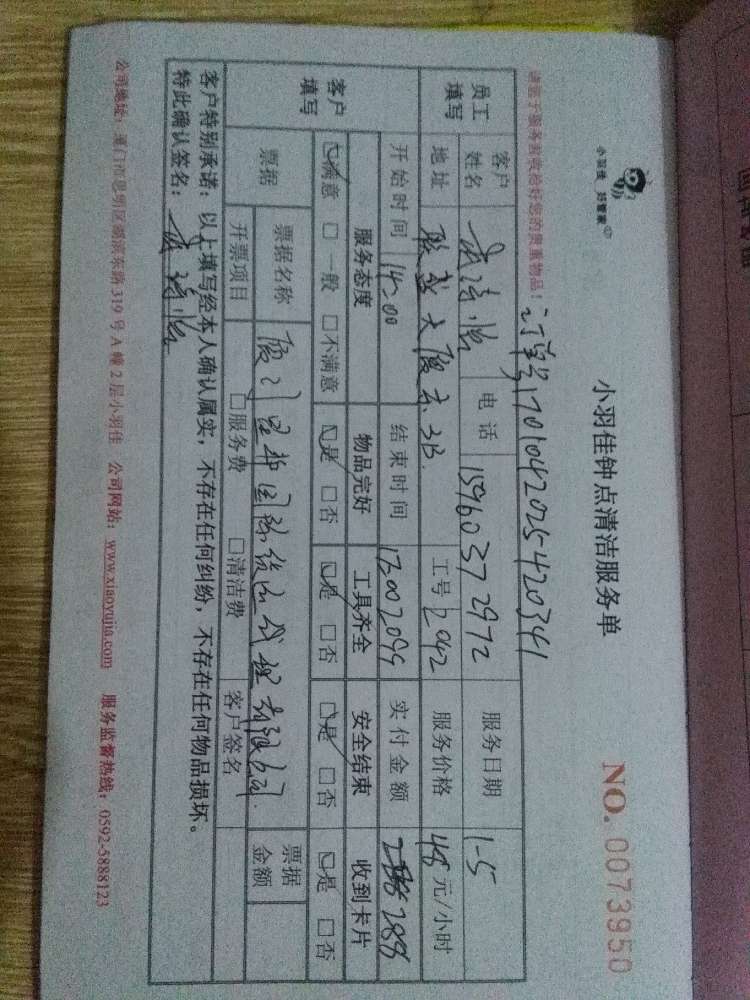 小羽佳 好管家
小羽佳钟点清洁服务单
NO. 0073950
请医于服务前收拾好您的贵重物品! 订单号1701042025420341
员工填写 客户姓名 电话 15960372972 服务日期 1-5
地址 大厦 3B. 工号 2042 服务价格 48元/小时
开始时间 14:00 结束时间 实付金额 288
客户填写 服务态度 物品完好 工具齐全 安全结束 收到卡片
☑满意 □一般 □不满意 ☑是 □否 ☑是 □否 ☑是 □否 ☑是 □否
票据 票据名称 厦门 国际货运代理有限公司. 票据金额
开票项目 □服务费 □清洁费 客户签名
客户特别承诺:以上填写经本人确认属实,不存在任何纠纷,不存在任何物品损坏。
特此确认签名:
公司地址:厦门市思明区湖滨东路319号A幢2层小羽佳 公司网站:www.xiaoyujia.com 服务监督热线:0592-5888123